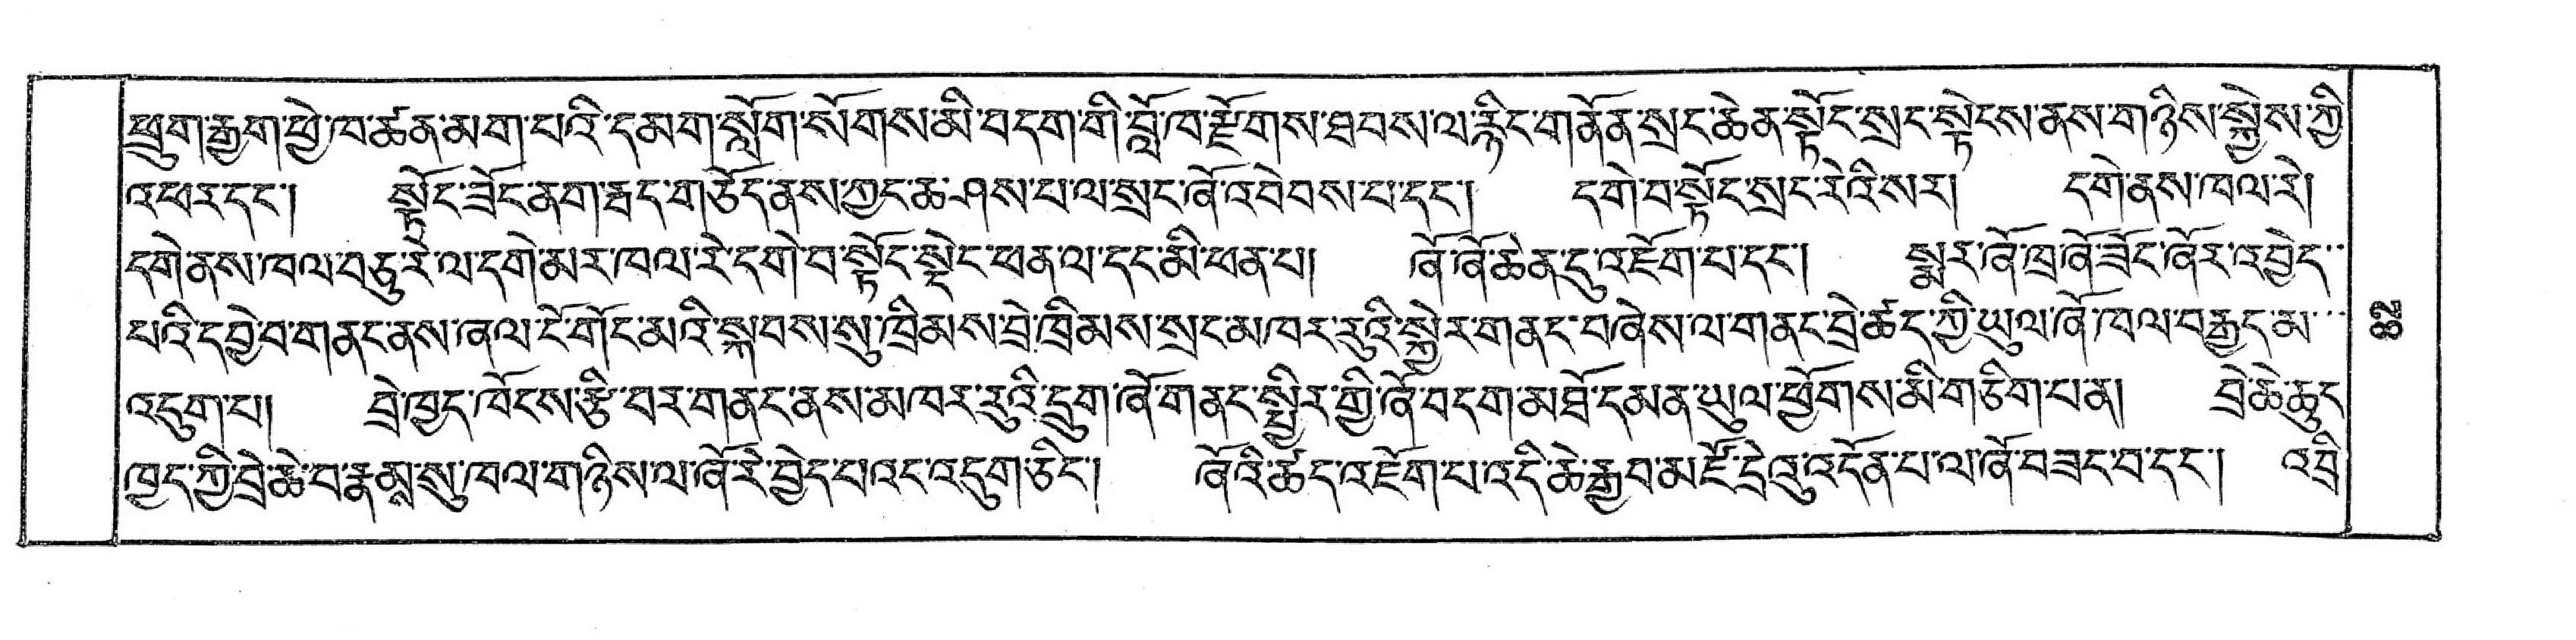 ཕྲུག་རྒྱག་ཕྱེ་ཁ་ཚན་མག་པའི་དམག་སློག་སོགས་མི་བདག་གི་བློ་ཁ་རྫོགས་ཐབས་ལ་རྙིང་གནོན་སྲང་ཆེན་སྟོང་སྲང་སྟེངས་ནས་གཉིས་སྐྱེས་ཀྱི
འཕར་དང་། སྟོང་ཟོང་ནག་རྐད་གཙོད་ནས་ཀྱང་ཆ་ཤས་པ་ལ་སྲང་ཞོ་འབེབས་པ་དང་། དགེ་བ་སྟོང་སྲང་རེའི་སར། དགེ་ནས་ཁལ་རེ།
དགེ་ནས་ཁལ་བཅུ་རེ་ལ་དགེ་མར་ཁལ་རེ་དགེ་བ་སྟོང་སྡེང་ཕན་ལ་དང་མི་ཕན་པ། ཞོ་ཞོ་ཆེན་དུ་འཇོག་པ་དང་། སྨར་ཞོ་ཁྲ་ཞོ་ཟོང་ཞོར་འབྱེད་
པའི་དབྱེ་བ་གནང་ནས་ཞལ་ངོ་གོང་མའི་སྐབས་སུ་ཁྲིམས་བྲེ་ཁྲིམས་སྲང་མཁར་རུའི་སྐྱེར་གནང་བཞེས་ལ་གནང་བྲེ་ཚད་ཀྱི་ཡུལ་ཞོ་ཁལ་བརྒྱད་མ་
འདུག་པ། བྲེ་ཁྱད་ཁོངས་རྩི་བར་གནང་ནས་མཁར་རུའི་དྲུག་ཞོ་གནང་སྤྱིར་གྱི་ཞོ་བདག་མཐོ་དམན་ཡུལ་ཕྱོགས་མི་གཅིག་པན། བྲེ་ཆེ་ཆུང
ཁྱད་ཀྱི་བྲེ་ཆེ་བ་རྣམས་སུ་ཁལ་གཉིས་ལ་ཞོ་རེ་བྱེད་པའང་འདུག་ཅིང་། ཞོའི་ཚད་འཇོག་པ་འདི་ཆེ་རྒྱབ་མཛོ་དྲེའུ་འདོན་པ་ལ་ཞོ་བཟང་བ་དང་། འབྲི